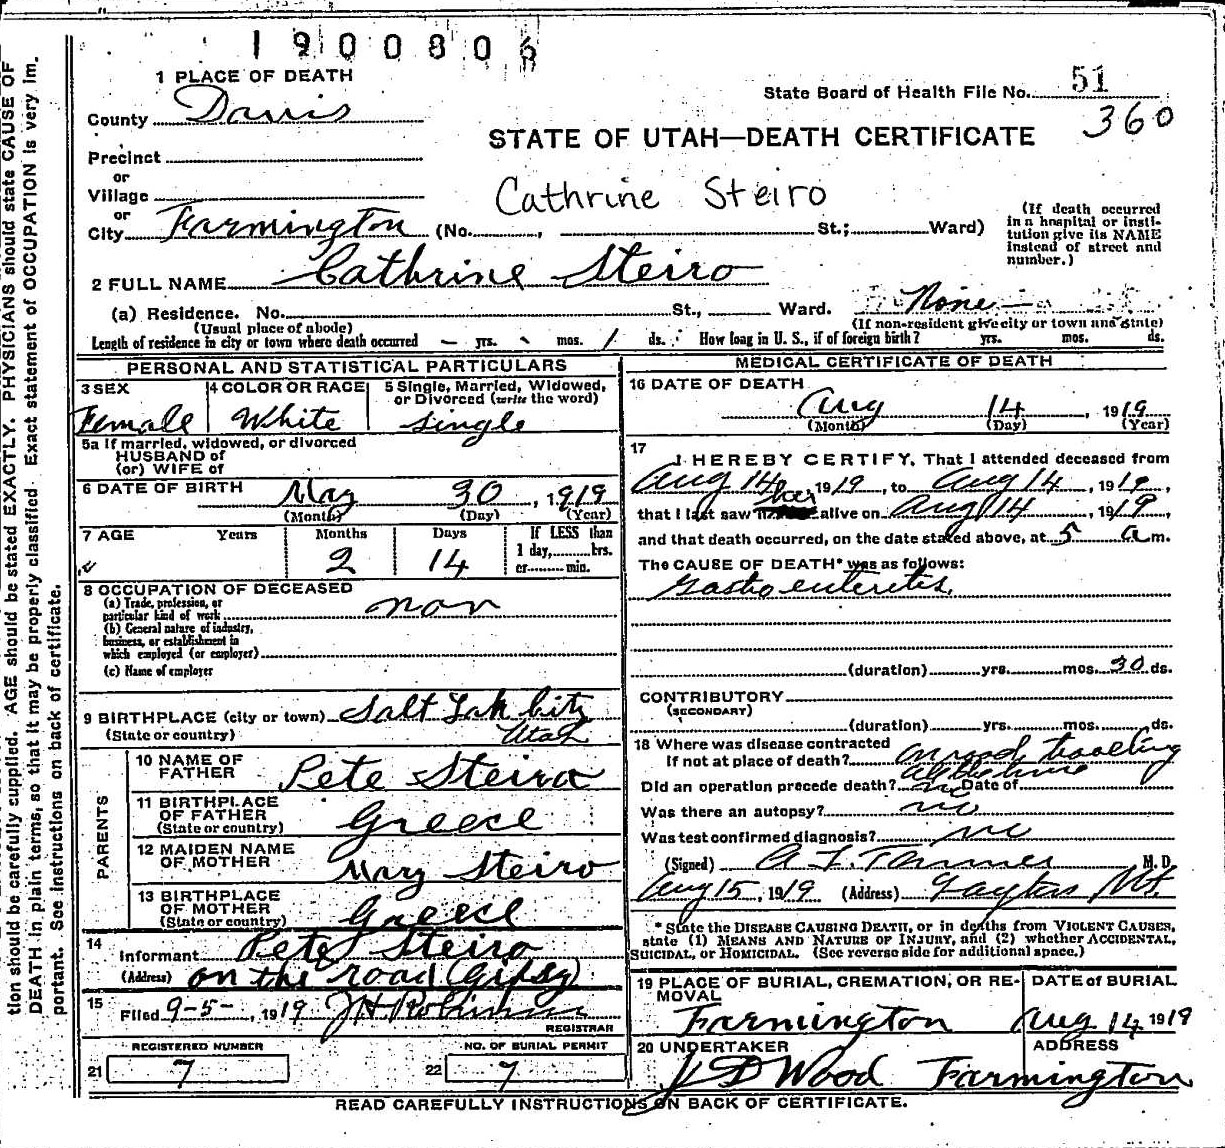 1900806
1 PLACE OF DEATH
State Board of Health File No. 51
360
County Davis
STATE OF UTAH—DEATH CERTIFICATE
Precinct
or
Village
Cathrine Steiro
or
City Farmington (No. , St.; Ward)
(If death occurred in a hospital or institution give its NAME instead of street and number.)
2 FULL NAME Cathrine Steiro
(a) Residence. No. St., Ward. None
(Usual place of abode) (If non-resident give city or town and state)
Length of residence in city or town where death occurred — yrs. mos. 1 ds. How long in U. S., if of foreign birth? yrs. mos. ds.
PERSONAL AND STATISTICAL PARTICULARS
3 SEX Female
4 COLOR OR RACE White
5 Single, Married, Widowed, or Divorced (write the word) single
5a If married, widowed, or divorced
HUSBAND of
(or) WIFE of
6 DATE OF BIRTH May 30, 1919
(Month) (Day) (Year)
7 AGE Years Months Days If LESS than
2 14 1 day, hrs.
or min.
8 OCCUPATION OF DECEASED
(a) Trade, profession, or
particular kind of work non
(b) General nature of industry,
business, or establishment in
which employed (or employer)
(c) Name of employer
9 BIRTHPLACE (city or town) Salt Lak City
(State or country) Utah
PARENTS
10 NAME OF FATHER Pete Steiro
11 BIRTHPLACE OF FATHER (State or country) Greece
12 MAIDEN NAME OF MOTHER Mary Steiro
13 BIRTHPLACE OF MOTHER (State or country) Greece
14
Informant Pete Steiro
(Address) on the road (Gipsy)
15
Filed 9-5-, 1919 J H Robinson
REGISTRAR
REGISTERED NUMBER
21 7
NO. OF BURIAL PERMIT
22 7
MEDICAL CERTIFICATE OF DEATH
16 DATE OF DEATH
Aug 14, 1919
(Month) (Day) (Year)
17
I HEREBY CERTIFY, That I attended deceased from
Aug 14, 1919, to Aug 14, 1919,
that I last saw her alive on Aug 14, 1919,
and that death occurred, on the date stated above, at 5 a m.
The CAUSE OF DEATH* was as follows:
Gastro enteretes.
(duration) yrs. mos. 30 ds.
CONTRIBUTORY
(SECONDARY)
(duration) yrs. mos. ds.
18 Where was disease contracted
If not at place of death? traveling
all the time
Did an operation precede death? no Date of
Was there an autopsy? no
Was test confirmed diagnosis? no
(Signed) A. Z. Tanner M. D.
Aug 15, 1919 (Address) Layton Ut.
* State the DISEASE CAUSING DEATH, or in deaths from VIOLENT CAUSES,
state (1) MEANS AND NATURE OF INJURY, and (2) whether ACCIDENTAL,
SUICIDAL, or HOMICIDAL. (See reverse side for additional space.)
19 PLACE OF BURIAL, CREMATION, OR REMOVAL
Farmington
DATE of BURIAL
Aug 14 1919
20 UNDERTAKER ADDRESS
J D Wood Farmington
READ CAREFULLY INSTRUCTIONS ON BACK OF CERTIFICATE.
tion should be carefully supplied. AGE should be stated EXACTLY. PHYSICIANS should state CAUSE OF
DEATH in plain terms, so that it may be properly classified. Exact statement of OCCUPATION is very im-
portant. See instructions on back of certificate.